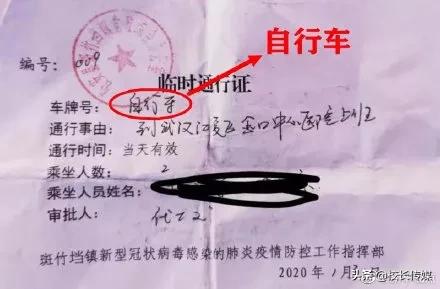 自行车
编号：009
临时通行证
车牌号：自行车
通行事由：到武汉江夏区金口中心医院上班
通行时间：当天有效
乘坐人数：2
乘坐人员姓名：
审批人：
斑竹垱镇新型冠状病毒感染的肺炎疫情防控工作指挥部
2020年1月
头条@校长传媒